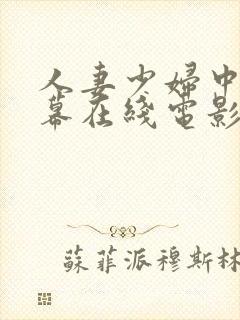 人妻少婦中
幕在綫電影
蘇菲派穆斯林